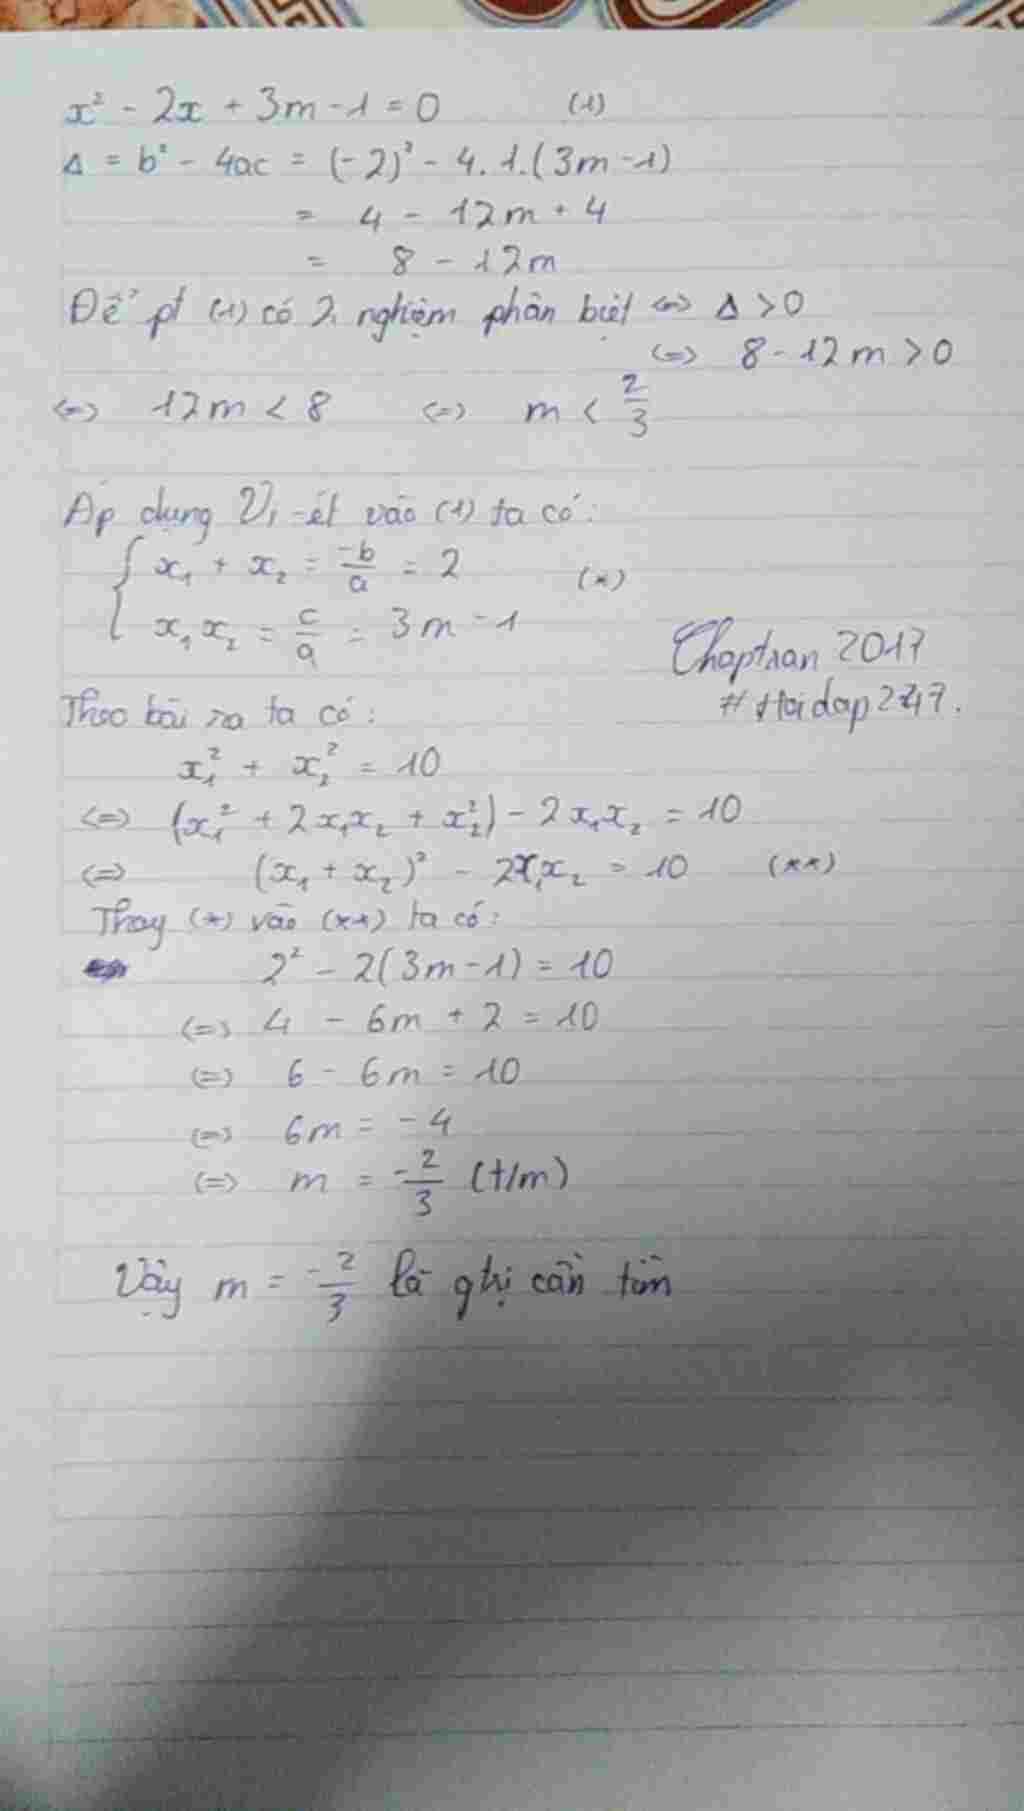 x² - 2x + 3m - 1 = 0 (1)
Δ = b² - 4ac = (-2)² - 4.1.(3m - 1)
= 4 - 12m + 4
= 8 - 12m
Để pt (1) có 2 nghiệm phân biệt <=> Δ > 0
<=> 8 - 12m > 0
<=> 12m < 8 <=> m < 2/3
Áp dụng Vi-ét vào (1) ta có:
{ x₁ + x₂ = -b/a = 2 (*)
x₁x₂ = c/a = 3m - 1
Chaptran 2017
#Hoidap247.
Theo bài ra ta có:
x₁² + x₂² = 10
<=> (x₁² + 2x₁x₂ + x₂²) - 2x₁x₂ = 10
<=> (x₁ + x₂)² - 2x₁x₂ = 10 (**)
Thay (*) vào (**) ta có:
2² - 2(3m - 1) = 10
<=> 4 - 6m + 2 = 10
<=> 6 - 6m = 10
<=> 6m = -4
<=> m = -2/3 (t/m)
Vậy m = -2/3 là ghị cần tìm